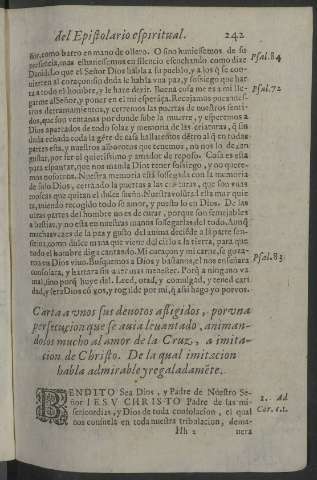 del Epistolario espiritual. 242
ñor, como barro en mano de ollero. O si no huuiessemos de su
presencia, mas estuuiessemos en silencio escuchando como dize Psal.84
Dauid: Lo que el Señor Dios habla a su pueblo, y a los q̃ se con-
uierten al coraçon: sin duda le habla vna paz, y sossiego que har
ta a todo el hombre, y le haze dezir. Buena cosa me es a mi lle- Psal.72
garme al Señor, y poner en el mi esperãça. Recojamos pues nues-
tros derramamientos, y cerremos las puertas de nuestros senti-
dos, que son ventanas por donde sube la muerte, y esperemos a
Dios apartados de todo solaz y memoria de las criaturas, q̃ sin
duda echada toda la gẽte de casa hallaremos dẽtro al q̃ en todas
partes esta, y nuestros alborotos que tenemos, no nos lo dexan
gustar, por ser el quietissimo y amador de reposo. Cosa es esta
para espantar, que nos manda Dios tener sossiego, y no quere-
mos nosotros. Nuestra memoria está sossegada con la memoria
de solo Dios, cerrando la puerta a las criaturas, que son
que quitan el dulce sueño. Nuestra volũtad ella mar quie
ta, teniendo recogido todo su amor, y puesto lo en Dios. De las
otras partes del hombre no es de curar, porque son semejables
a bestias, y no esta en nuestras manos sossegarlas del todo. Aunq̃
muchas vezes de la paz y gusto del anima deciẽde a la parte sen-
sitiua, como dulce mana que viene del cielo a la tierra, para que
todo el hombre diga cantando. Mi coraçon y mi carne, se goza- Psal.83
ron en Dios viuo. Busquemos a Dios y bastanos, el nos enseñara
consolara, y hartara sin auer mas menester. Porq̃ a ningun vo
mal, sino porq̃ huye del. Leed, orad, y comulgad, y tened cari
dad, y sera Dios cõ vos, y rogilde por mi, q̃ assi hago yo por vos.
Carta a vnos sus deuotos afligidos, por vna
persecucion que se auia leuantado, animan-
dolos mucho al amor de la Cruz, a imita-
cion de Christo. De la qual imitacion
habla admirable y regaladamẽte.
BENDITO Sea Dios, y Padre de Nuestro Se- 2. Ad
ñor IESV CHRISTO Padre de las mi- Cor. c.1.
sericordias, y Dios de toda consolacion, el qual
nos consuela en toda nuestra tribulacion, dema-
Hh 2 nera